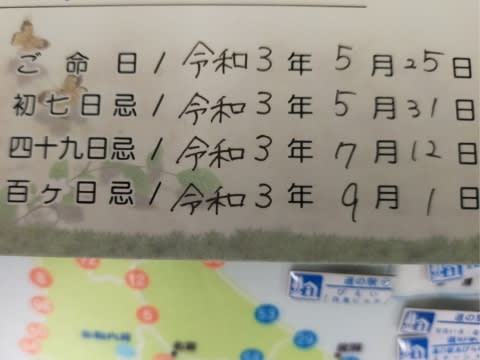 ご命日/令和3年5月25日
初七日忌/令和3年5月31日
四十九日忌/令和3年7月12日
百ヶ日忌/令和3年9月1日
道の駅